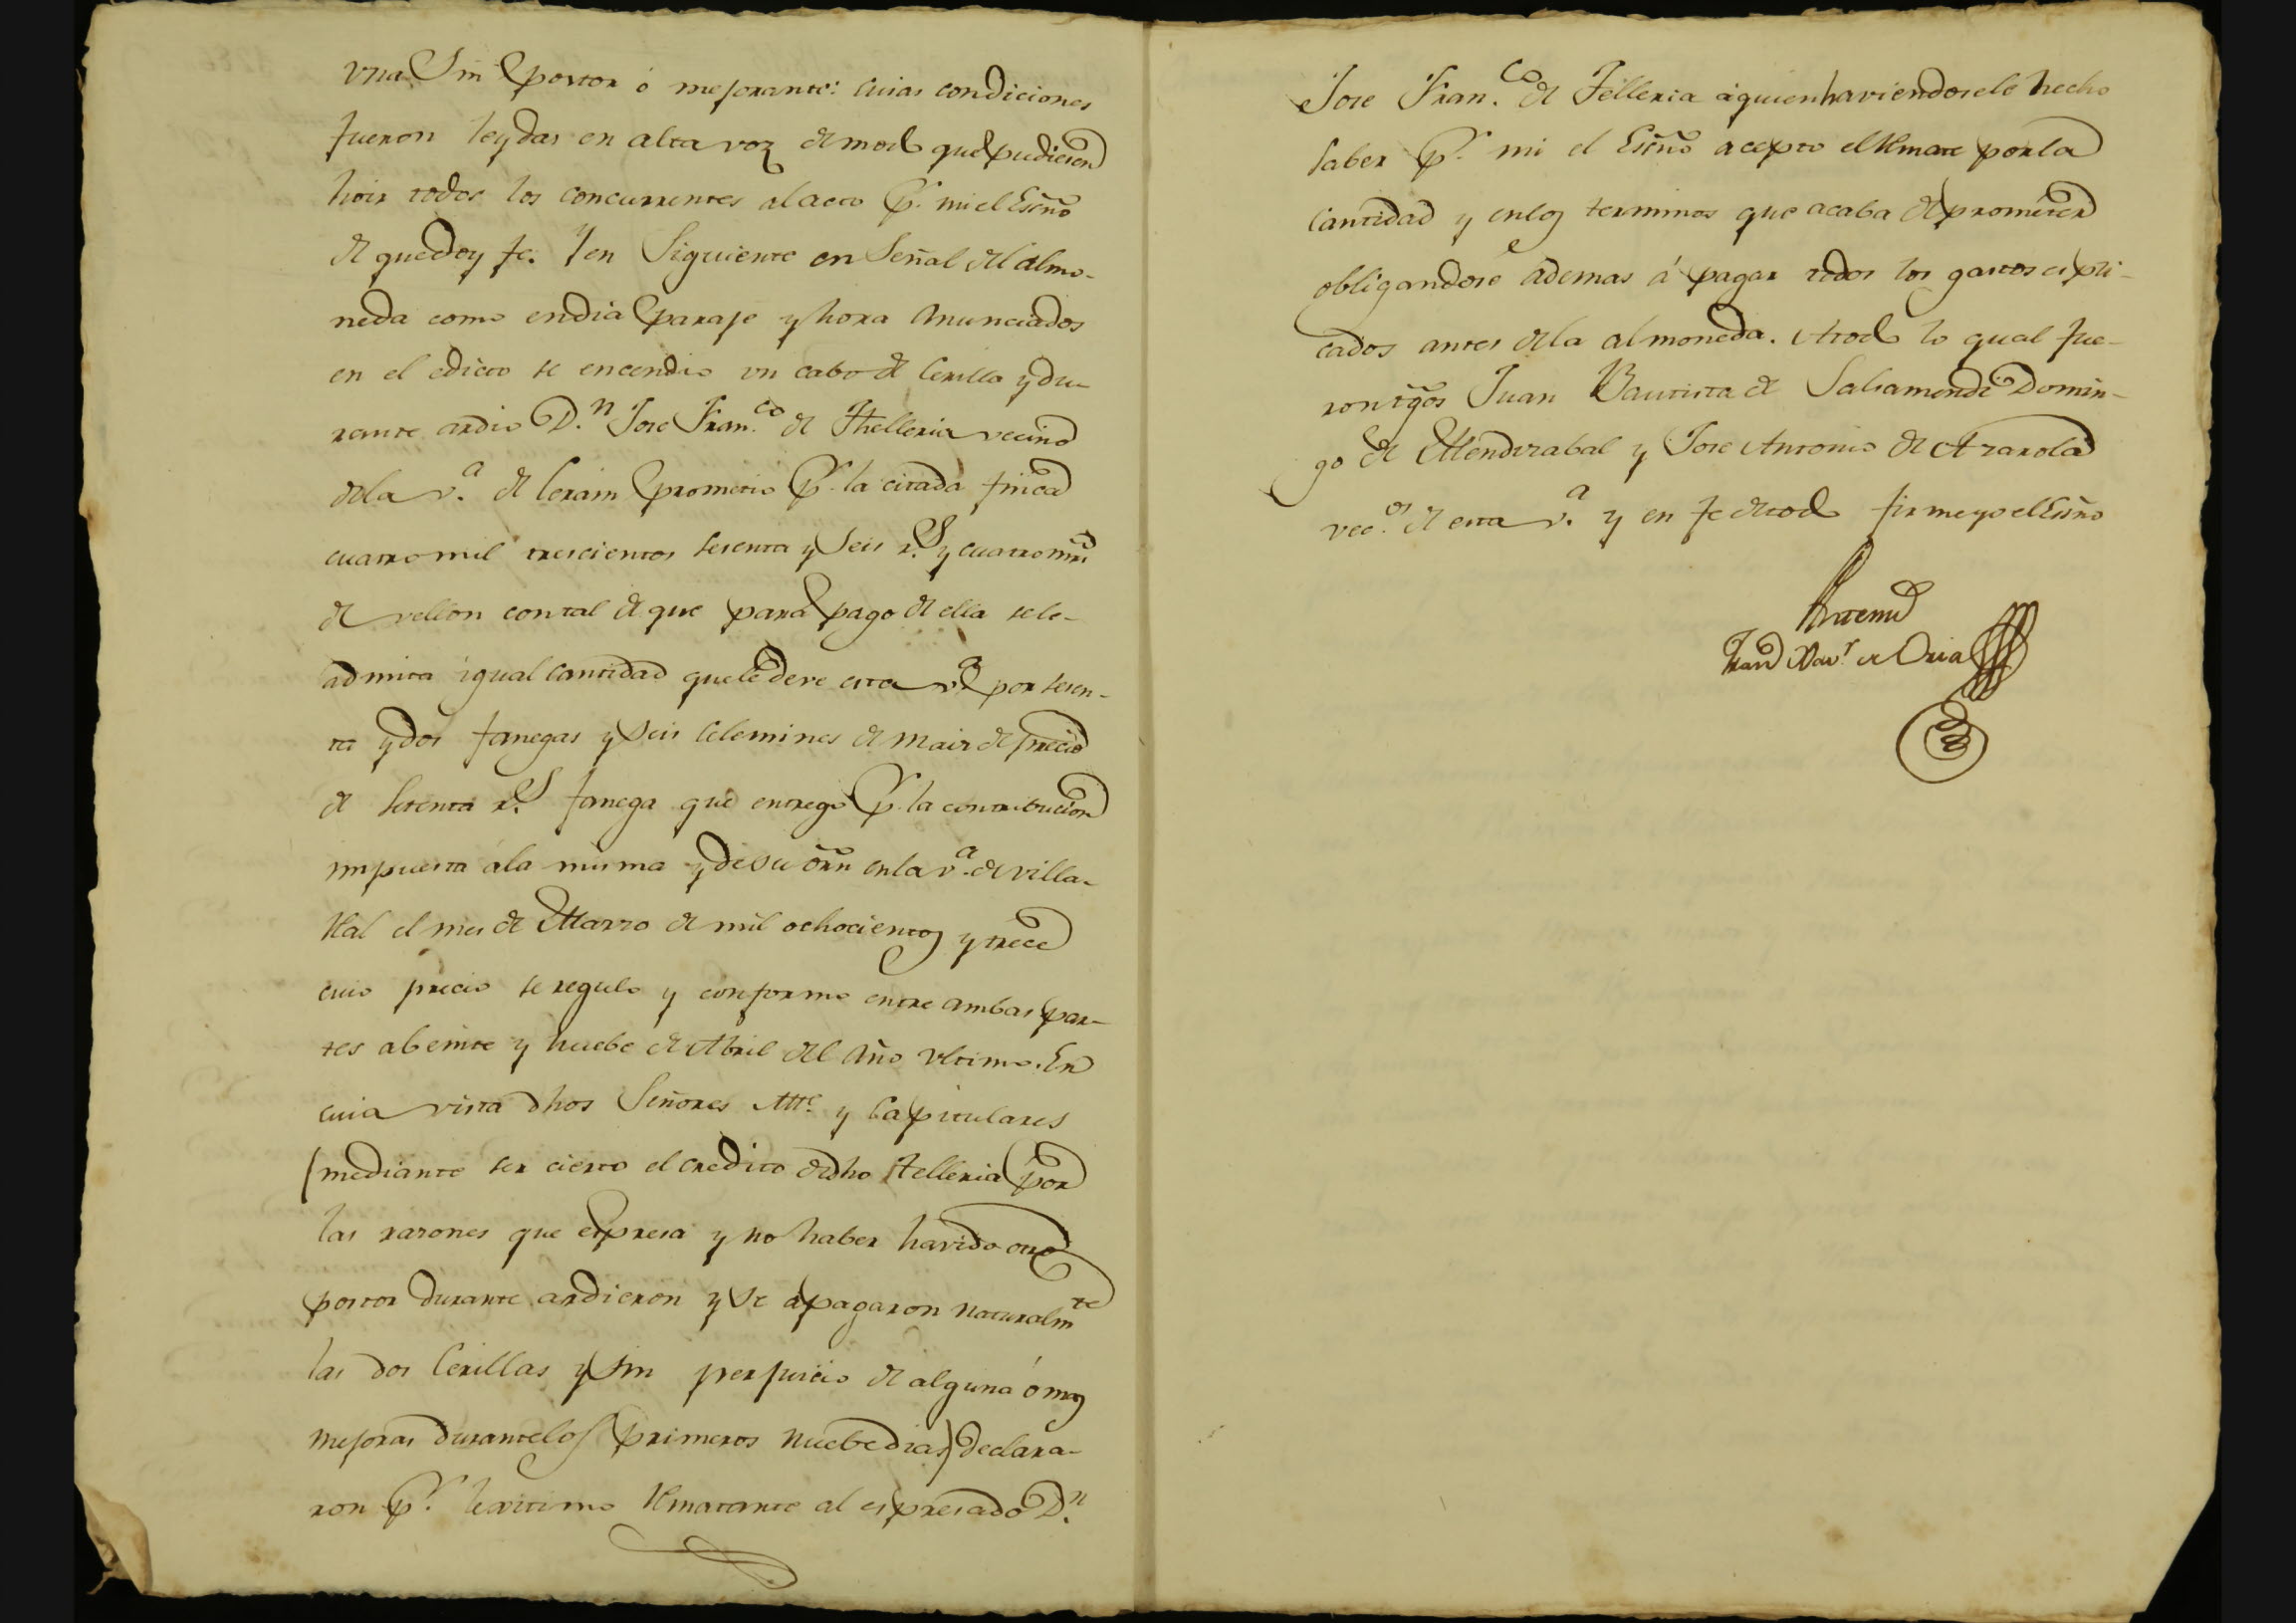 vna sin postor ó mejorante: cuias condiciones
fueron leydas en alta voz de modo que pudiesen
hoir todos los concurrentes al acto pr. mi el Esñō
de que doy fe. Y en siguiente en Señal del almo-
neda como en dia paraje y hora anunciados
en el edicto se encendio vn cabo de Cerilla y du-
rante ardio D.n Jose Fran.co de Thelleria vecino
de la v.a de Cerain prometio pr. la citada finca
cuatro mil trescientos sesenta y seis r.s y cuatro mrs
de vellon con tal de que para pago de ella se le
admita igual cantidad que le deve esta v.a por sesen-
ta y dos fanegas y seis Celemines de maiz de precio
de setenta r.s fanega que entrego pr. la contribucion
impuesta á la misma y de su orñ en la v.a de villa-
Real el mes de Marzo de mil ochocientos y trece
cuio precio se regulo y conformo entre ambas par-
tes a beinte y nuebe de Abril del Año vltimo. En
cuia vista dhos Señores Alle. y Capitulares
(mediante ser cierto el credito de dho Thelleria por
las razones que expresa y no haber havido otro
postor durante ardieron y se apagaron naturalmte
las dos Cerillas y sin perjuicio de alguna ó mas
mejoras durante los primeros nuebe dias) declara-
ron pr. lexitimo Rematante al espresado D.n
Jose Fran.co de Telleria á quien haviendosele hecho
saber pr. mi el Esñō acepto el Remate por la
cantidad y en los terminos que acaba de prometer
obligandose ádemas á pagar todos los gastos espli-
cados antes de la almoneda. A todo lo qual fue-
ron tgōs Juan Bautista de Salsamendi Domin-
go de Mendizabal y Jose Antonio de Arzarola
vec.os de esta v.a y en fe de todo firme yo el Esñō
Antemi
Fran Xav.r de Oria